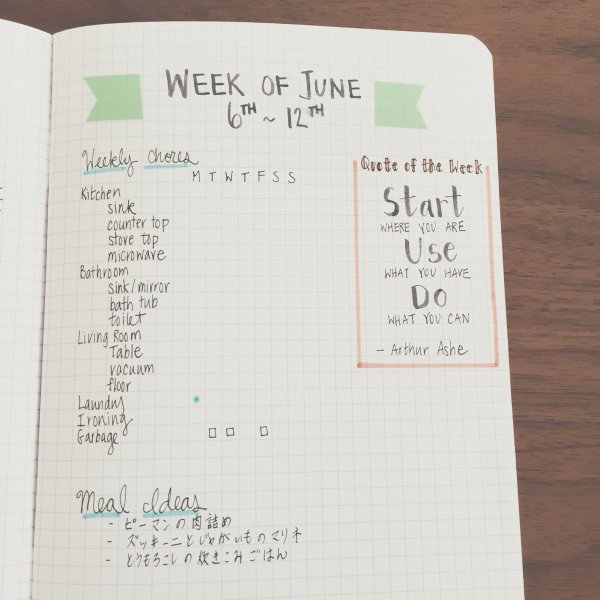 WEEK OF JUNE
6TH ~ 12TH
Weekly Chores
M T W T F S S
Kitchen
sink
counter top
stove top
microwave
Bathroom
sink/mirror
bath tub
toilet
Living Room
Table
vacuum
floor
Laundry
Ironing
Garbage
Quote of the Week
Start
WHERE YOU ARE
Use
WHAT YOU HAVE
Do
WHAT YOU CAN
- Arthur Ashe
Meal Ideas
- ピーマンの肉詰め
- ズッキーニとじゃがいものマリネ
- とうもろこしの炊きこみごはん